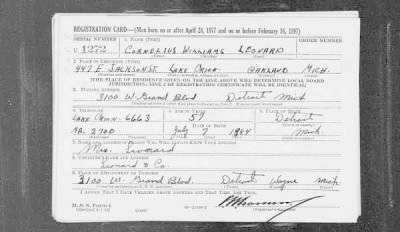 REGISTRATION CARD—(Men born on or after April 28, 1877 and on or before February 16, 1897)
SERIAL NUMBER 1. NAME (Print) ORDER NUMBER
U 1272 CORNELIUS WILLIAMS LEONARD
2. PLACE OF RESIDENCE (Print)
947 E JACKSON ST. LAKE ORION OAKLAND MICH.
[THE PLACE OF RESIDENCE GIVEN ON THE LINE ABOVE WILL DETERMINE LOCAL BOARD
JURISDICTION; LINE 2 OF REGISTRATION CERTIFICATE WILL BE IDENTICAL]
3. MAILING ADDRESS
3100 W. Grand Blvd Detroit Mich
4. TELEPHONE
LAKE ORION 6663 57 Detroit
MA. 2700 July 7 1884 Mich.
7. NAME AND ADDRESS OF PERSON WHO WILL ALWAYS KNOW YOUR ADDRESS
Mrs. Leonard
8. EMPLOYER'S NAME AND ADDRESS
Leonard & Co.
9. PLACE OF EMPLOYMENT OR BUSINESS
3100 W. Grand Blvd. Detroit Wayne Mich
I AFFIRM THAT I HAVE VERIFIED ABOVE ANSWERS AND THAT THEY ARE TRUE.
D. S. S. Form 1